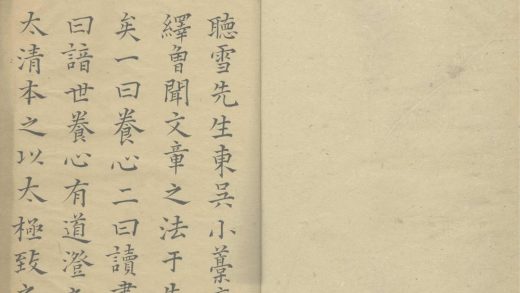 聽雪先生東吳小藁
繹曾聞文章之法于先
矣一曰養心二曰讀書
曰諳世養心有道澄
太清本之以太極致之